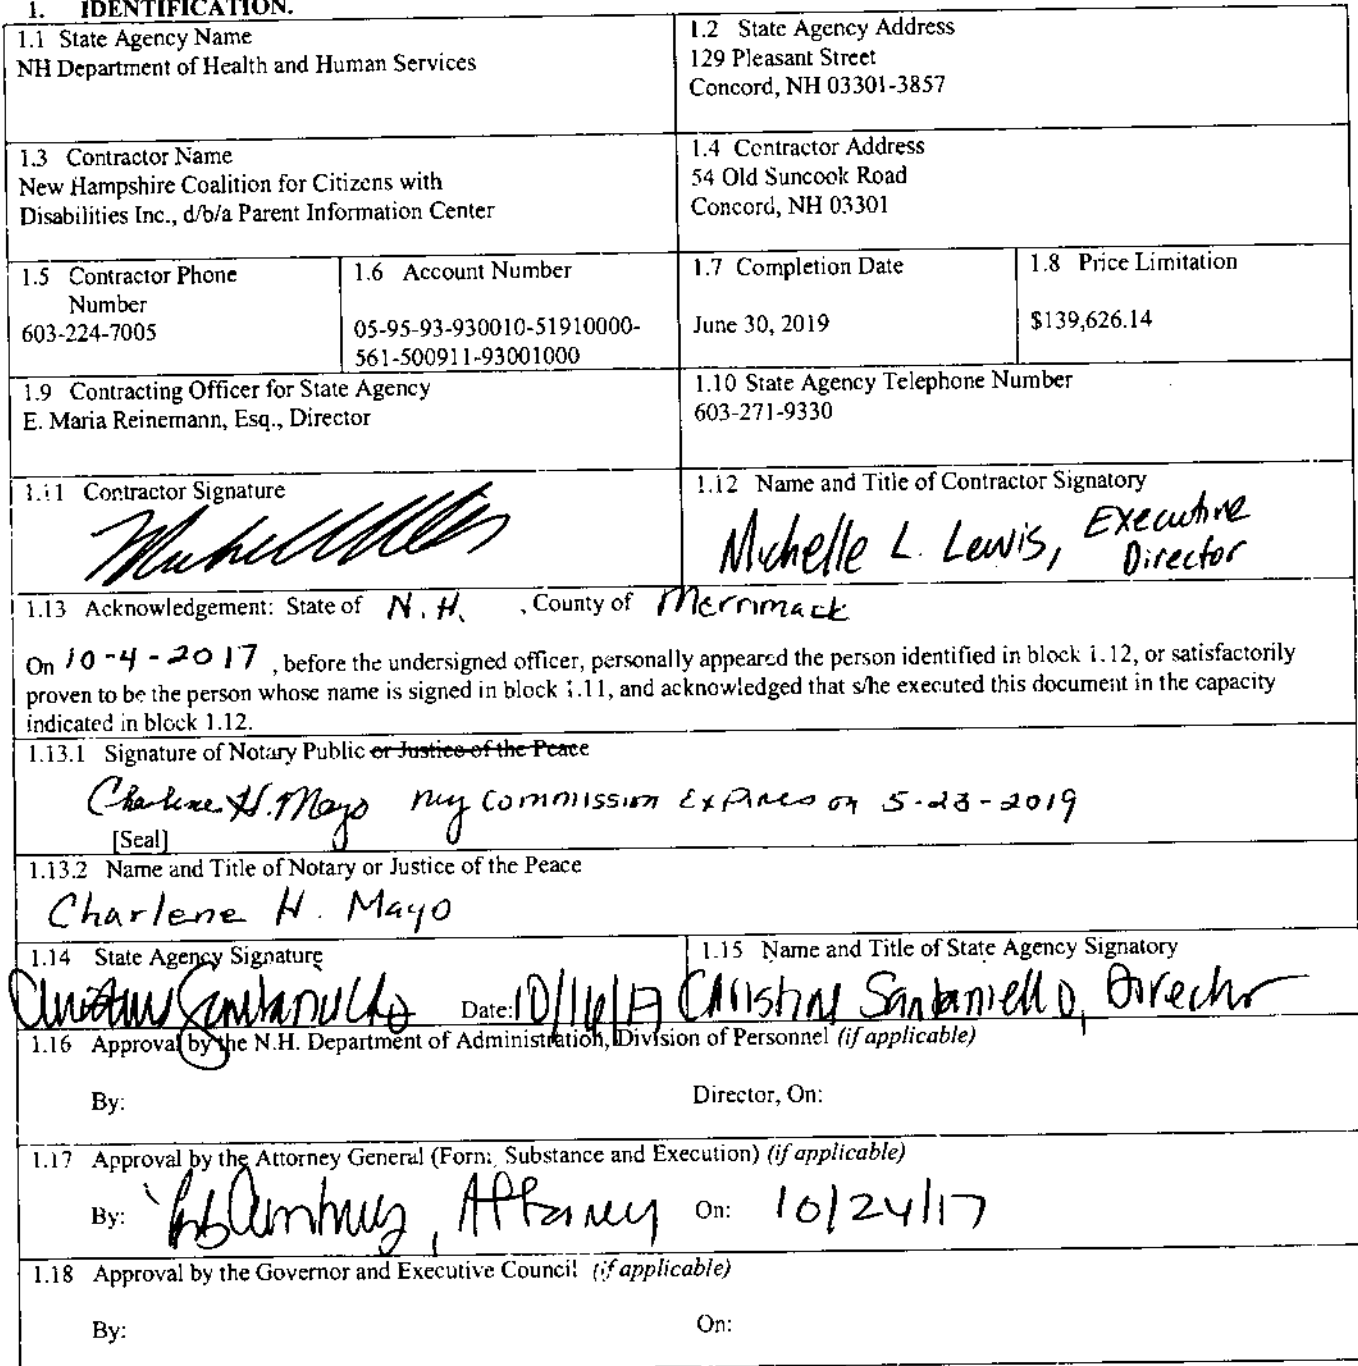 1. IDENTIFICATION.
1.1 State Agency Name
NH Department of Health and Human Services
1.2 State Agency Address
129 Pleasant Street
Concord, NH 03301-3857
1.3 Contractor Name
New Hampshire Coalition for Citizens with
Disabilities Inc., d/b/a Parent Information Center
1.4 Contractor Address
54 Old Suncook Road
Concord, NH 03301
1.5 Contractor Phone
Number
603-224-7005
1.6 Account Number
05-95-93-930010-51910000-
561-500911-93001000
1.7 Completion Date
June 30, 2019
1.8 Price Limitation
$139,626.14
1.9 Contracting Officer for State Agency
E. Maria Reinemann, Esq., Director
1.10 State Agency Telephone Number
603-271-9330
1.11 Contractor Signature
1.12 Name and Title of Contractor Signatory
Michelle L. Lewis, Executive
Director
1.13 Acknowledgement: State of N.H. , County of Merrimack
On 10-4-2017 , before the undersigned officer, personally appeared the person identified in block 1.12, or satisfactorily
proven to be the person whose name is signed in block 1.11, and acknowledged that s/he executed this document in the capacity
indicated in block 1.12.
1.13.1 Signature of Notary Public or Justice of the Peace
Charlene H. Mayo my Commission Expires on 5-23-2019
[Seal]
1.13.2 Name and Title of Notary or Justice of the Peace
Charlene H. Mayo
1.14 State Agency Signature
Date: 10/16/17
1.15 Name and Title of State Agency Signatory
Christine Santaniello, Director
1.16 Approval by the N.H. Department of Administration, Division of Personnel (if applicable)
By: Director, On:
1.17 Approval by the Attorney General (Form, Substance and Execution) (if applicable)
By: , Attorney On: 10/24/17
1.18 Approval by the Governor and Executive Council (if applicable)
By: On: